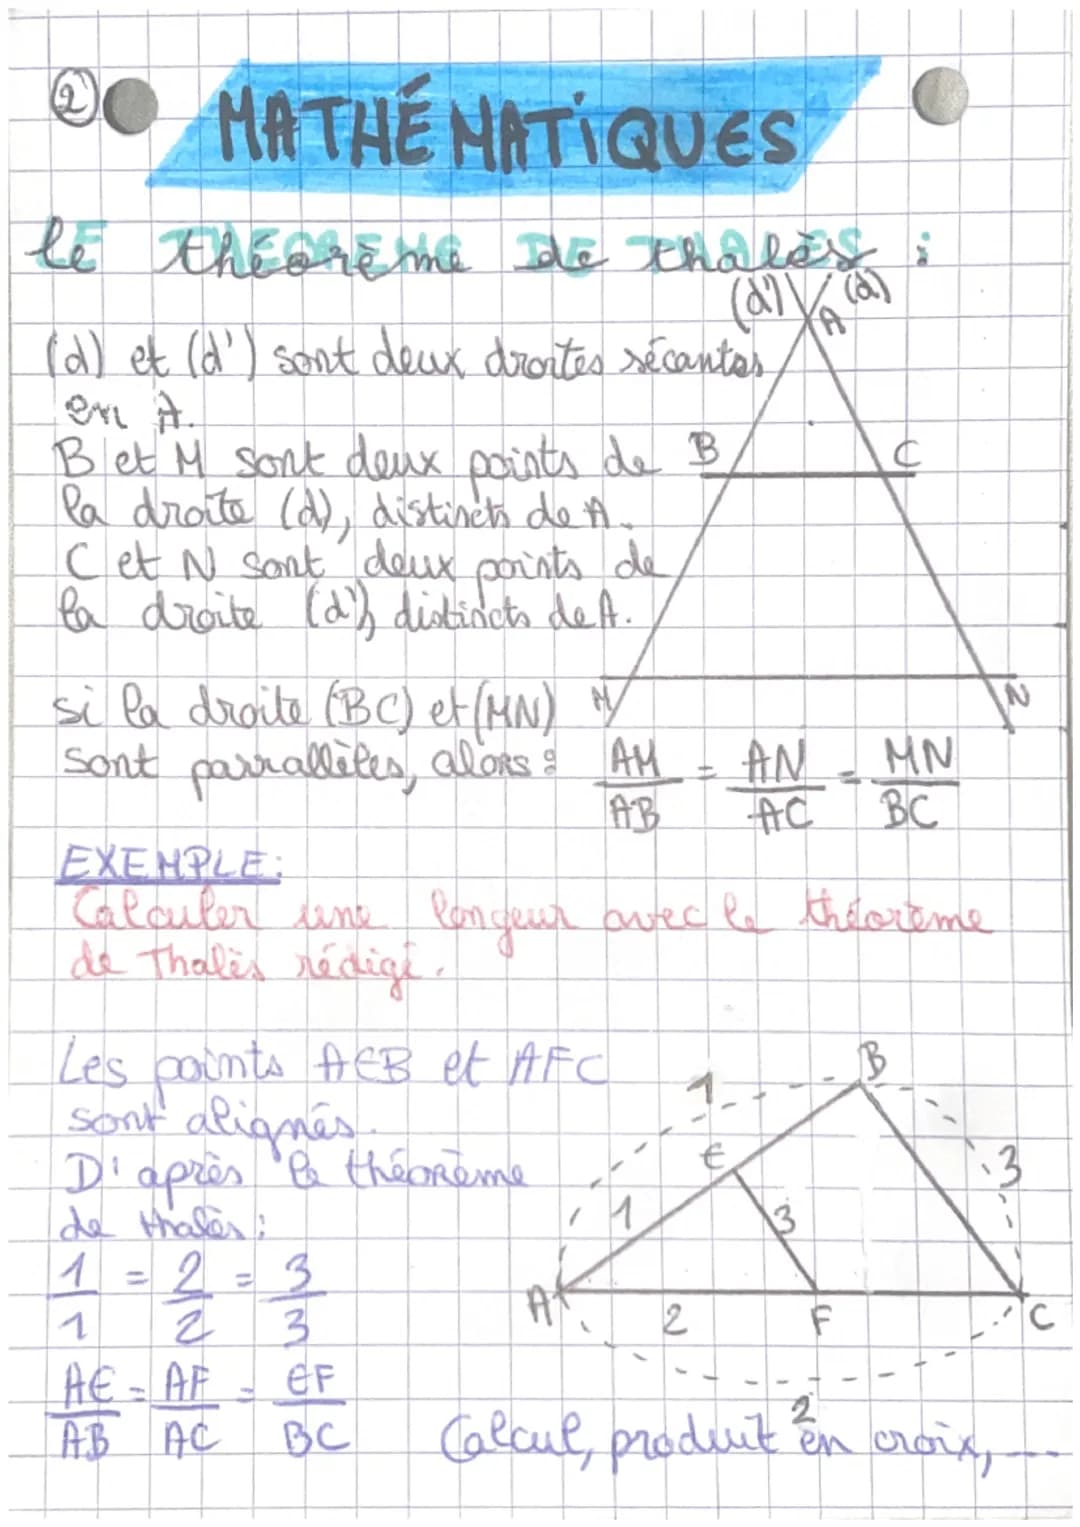 2
MATHÉMATIQUES
LE THÉORÈME DE THALÈS :
(d') (d)
A
(d) et (d') sont deux droites sécantes
en A.
B et M sont deux points de
la droite (d), distincts de A.
C et N sont deux points de
la droite (d'), distincts de A.
B C
M N
si la droite (BC) et (MN)
sont parrallèles, alors :
AM/AB = AN/AC = MN/BC
EXEMPLE:
Calculer une longeur avec le théorème
de Thalès rédigé.
Les points AEB et AFC
sont alignés.
D'après le théorème
de thalès :
1/1 = 2/2 = 3/3
AE/AB = AF/AC = EF/BC
B
1
E 3
1 3
A 2 F C
2
Calcul, produit en croix, ...